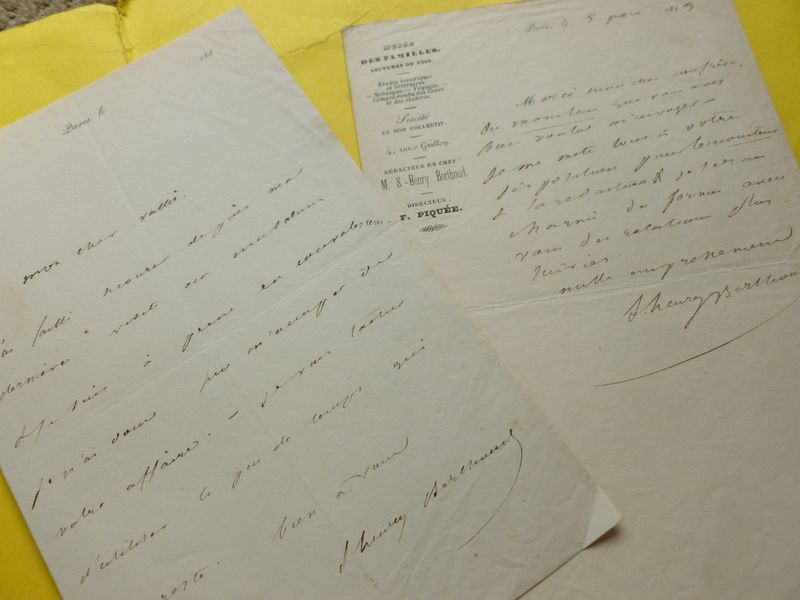 Paris le
183
mon cher vallée,
ai failli mourir depuis ma
dernière visite
Je suis à peine en convalescence
je n'ai donc pu m'occuper de
votre affaire. – je vais tâcher
d'utiliser le peu de temps qui
reste. bien à vous
S henry Berthoud
MUSÉE
DES FAMILLES,
LECTURES DU SOIR
Études historiques
et littéraires.
— Mélanges. — Voyages.
— Comptes-rendus des livres
et des théâtres.
Société
EN NOM COLLECTIF.
4, RUE Gaillon.
RÉDACTEUR EN CHEF:
M. S.-Henry Berthoud.
DIRECTEUR:
F. PIQUÉE.
Paris, le 5
Merci mon cher confrère,
du moniteur que vous avez
bien voulu m'envoyer –
Je me mets tout à votre
disposition pour
à la rédaction & je serai
charmé de former avec
vous des relations plus
suivies.
mille
S henry Berthoud